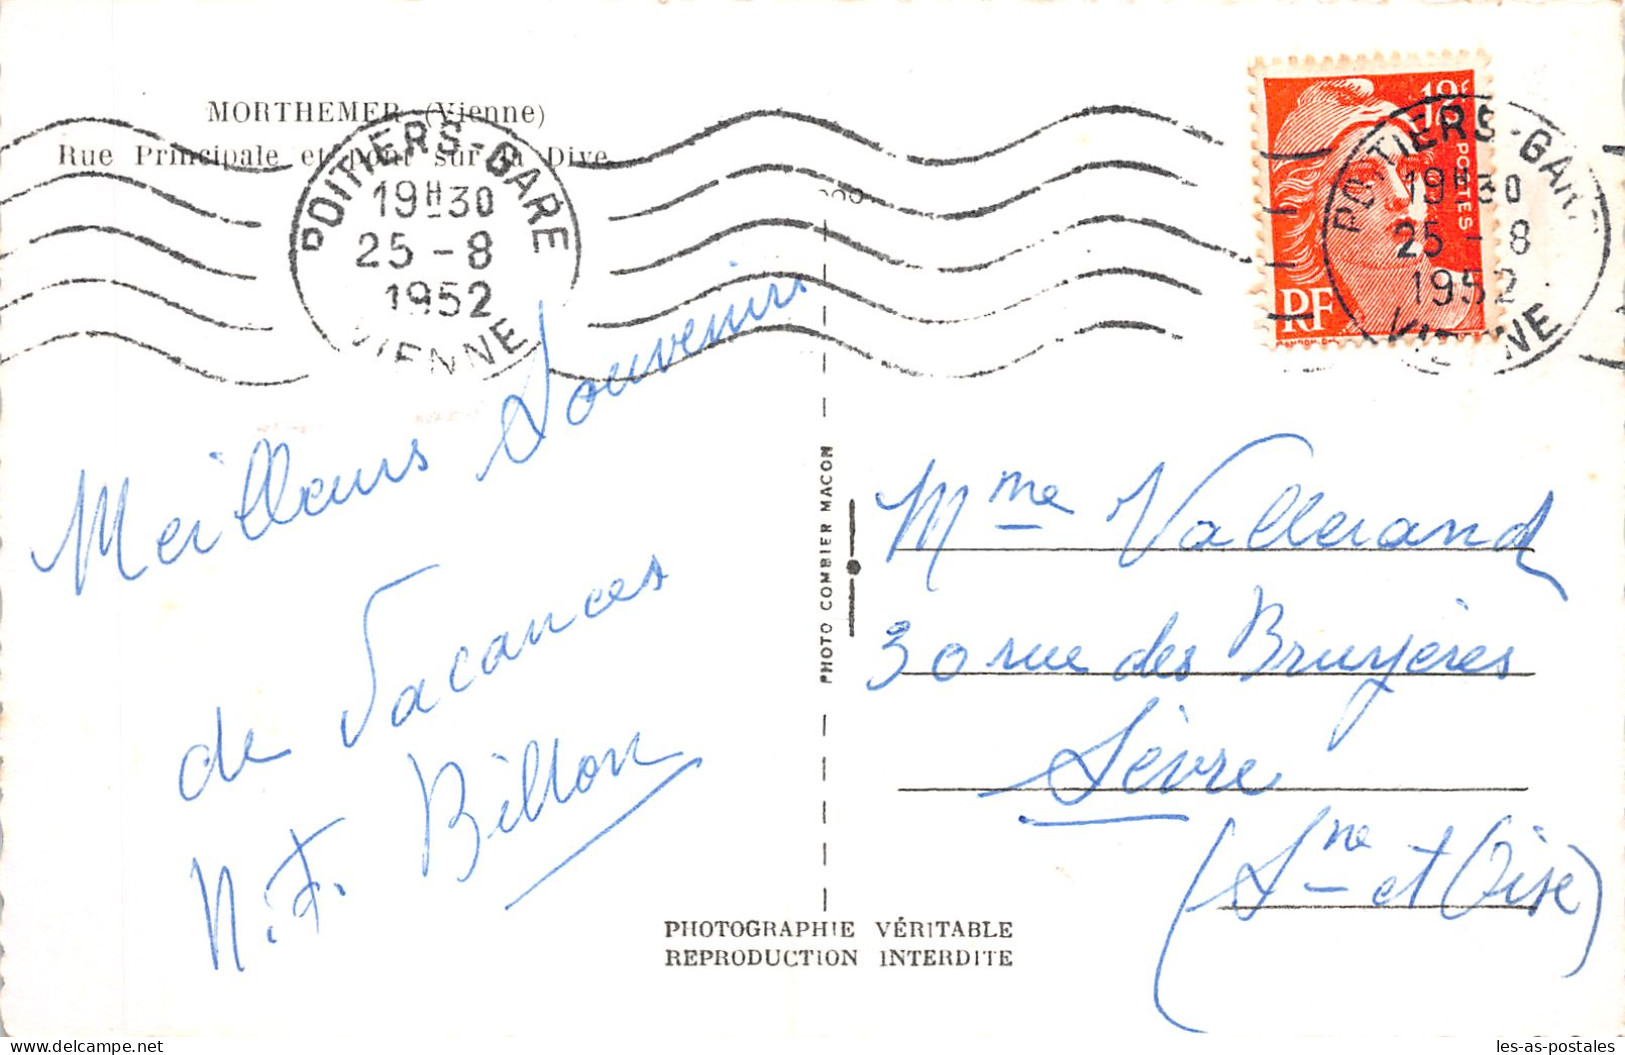 MORTHEMER (Vienne)
Rue Principale et pont sur la Dive
POITIERS-GARE
19H30
25-8
1952
VIENNE
12F
POSTES
RF
POITIERS-GARE
19H30
25-8
1952
VIENNE
Meilleurs Souvenirs
de Vacances
N.F. Billon
PHOTO COMBIER MACON
Mme Vallerand
30 rue des Bruyères
Sèvre
(Sne et Oise)
PHOTOGRAPHIE VÉRITABLE
REPRODUCTION INTERDITE
delcampe.net
les-as-postales